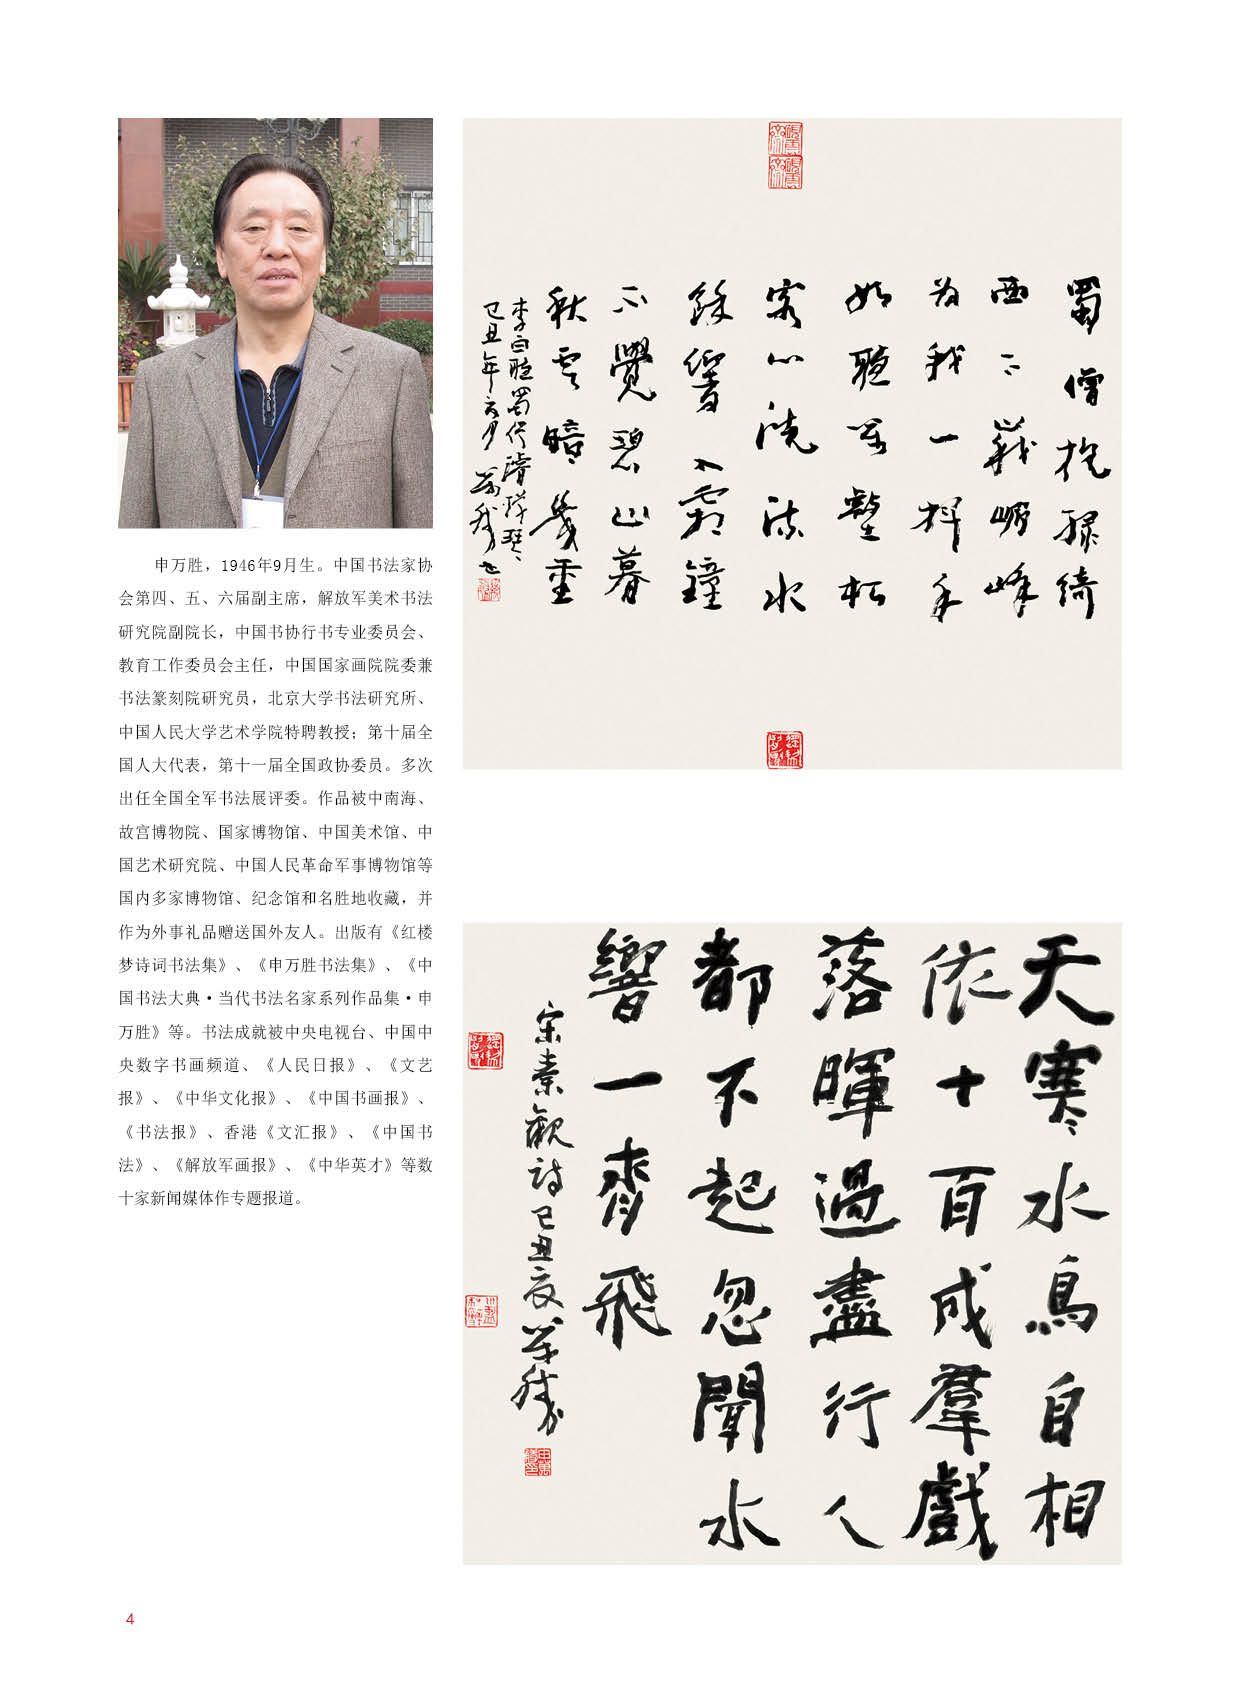 申万胜，1946年9月生。中国书法家协
会第四、五、六届副主席，解放军美术书法
研究院副院长，中国书协行书专业委员会、
教育工作委员会主任，中国国家画院院委兼
书法篆刻院研究员，北京大学书法研究所、
中国人民大学艺术学院特聘教授；第十届全
国人大代表，第十一届全国政协委员。多次
出任全国全军书法展评委。作品被中南海、
故宫博物院、国家博物馆、中国美术馆、中
国艺术研究院、中国人民革命军事博物馆等
国内多家博物馆、纪念馆和名胜地收藏，并
作为外事礼品赠送国外友人。出版有《红楼
梦诗词书法集》、《申万胜书法集》、《中
国书法大典·当代书法名家系列作品集·申
万胜》等。书法成就被中央电视台、中国中
央数字书画频道、《人民日报》、《文艺
报》、《中华文化报》、《中国书画报》、
《书法报》、香港《文汇报》、《中国书
法》、《解放军画报》、《中华英才》等数
十家新闻媒体作专题报道。
蜀僧抱綠綺
西下峩嵋峰
為我一揮手
如聽万壑松
客心洗流水
餘響入霜鐘
不覺碧山暮
秋雲暗幾重
李白聽蜀僧濬彈琴
己丑年六月萬勝书
天寒水鳥自相
依十百成羣戲
落暉過盡行人
都不起忽聞水
響一齊飛
宋秦觀詩己丑夏萬勝
4